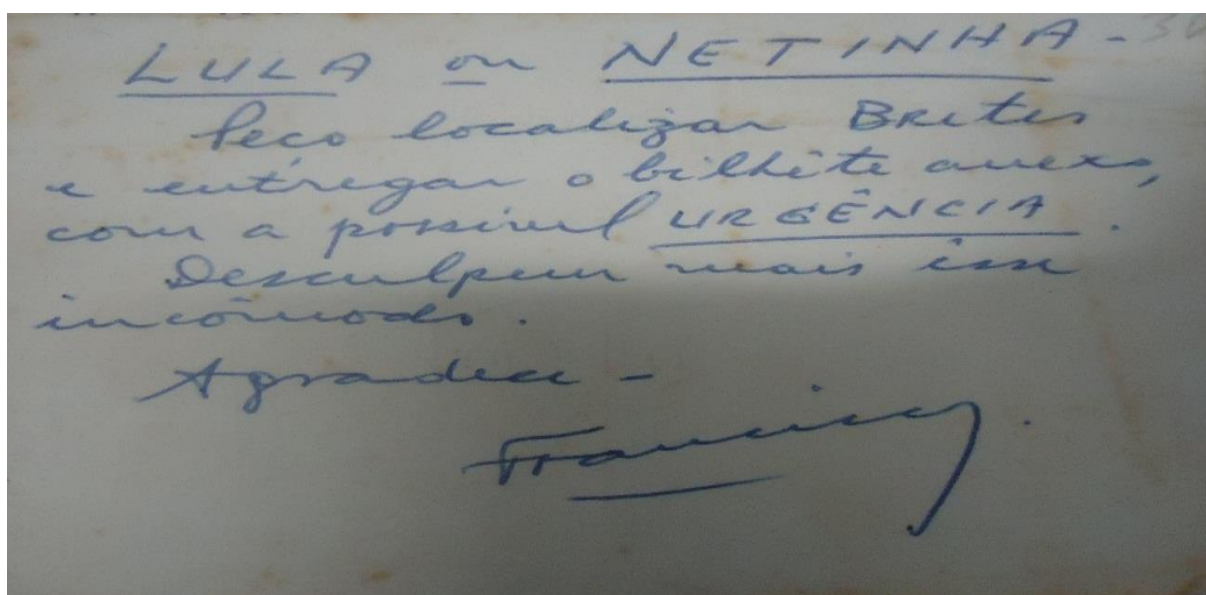 LULA ou NETINHA -
Peço localizar Brites
e entregar o bilhête anexo,
com a possivel URGÊNCIA.
Desculpem mais esse
incômodo.
Agradece -
Francisco.